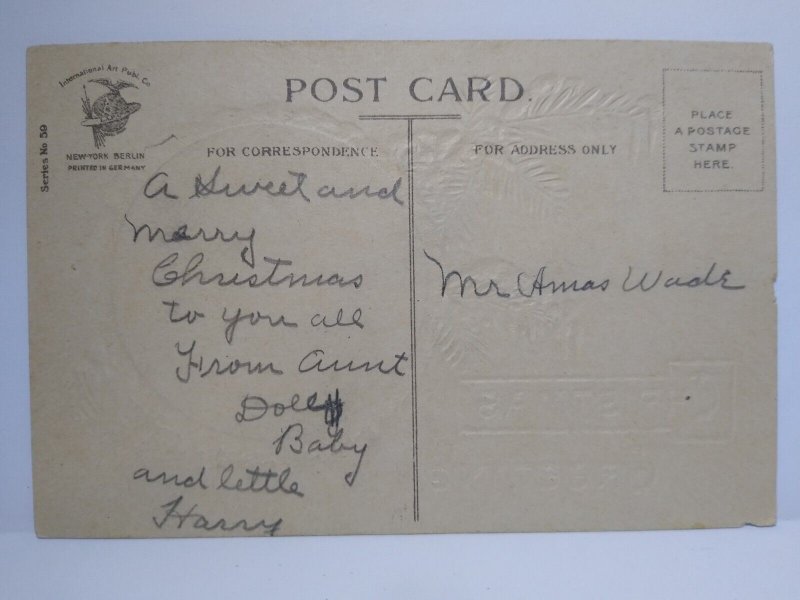 POST CARD.
International Art Publ. Co
NEW-YORK BERLIN
PRINTED IN GERMANY
Series No 59
FOR CORRESPONDENCE
FOR ADDRESS ONLY
PLACE
A POSTAGE
STAMP
HERE.
A Sweet and
merry
Christmas
to you all
From Aunt
Dolly
Baby
and little
Harry
Mr Amas Wade